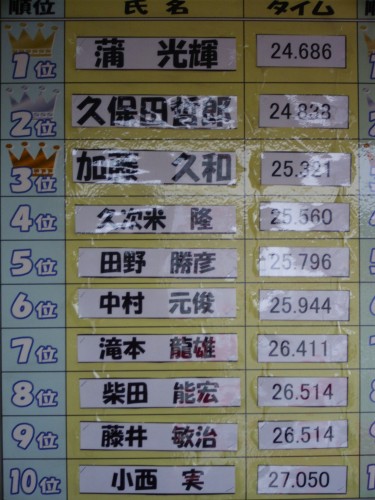 順位 氏名 タイム
1位 蒲 光輝 24.686
2位 久保田哲郎 24.838
3位 加藤 久和 25.321
4位 久次米 隆 25.560
5位 田野 勝彦 25.796
6位 中村 元俊 25.944
7位 滝本 龍雄 26.411
8位 柴田 能宏 26.514
9位 藤井 敏治 26.514
10位 小西 実 27.050